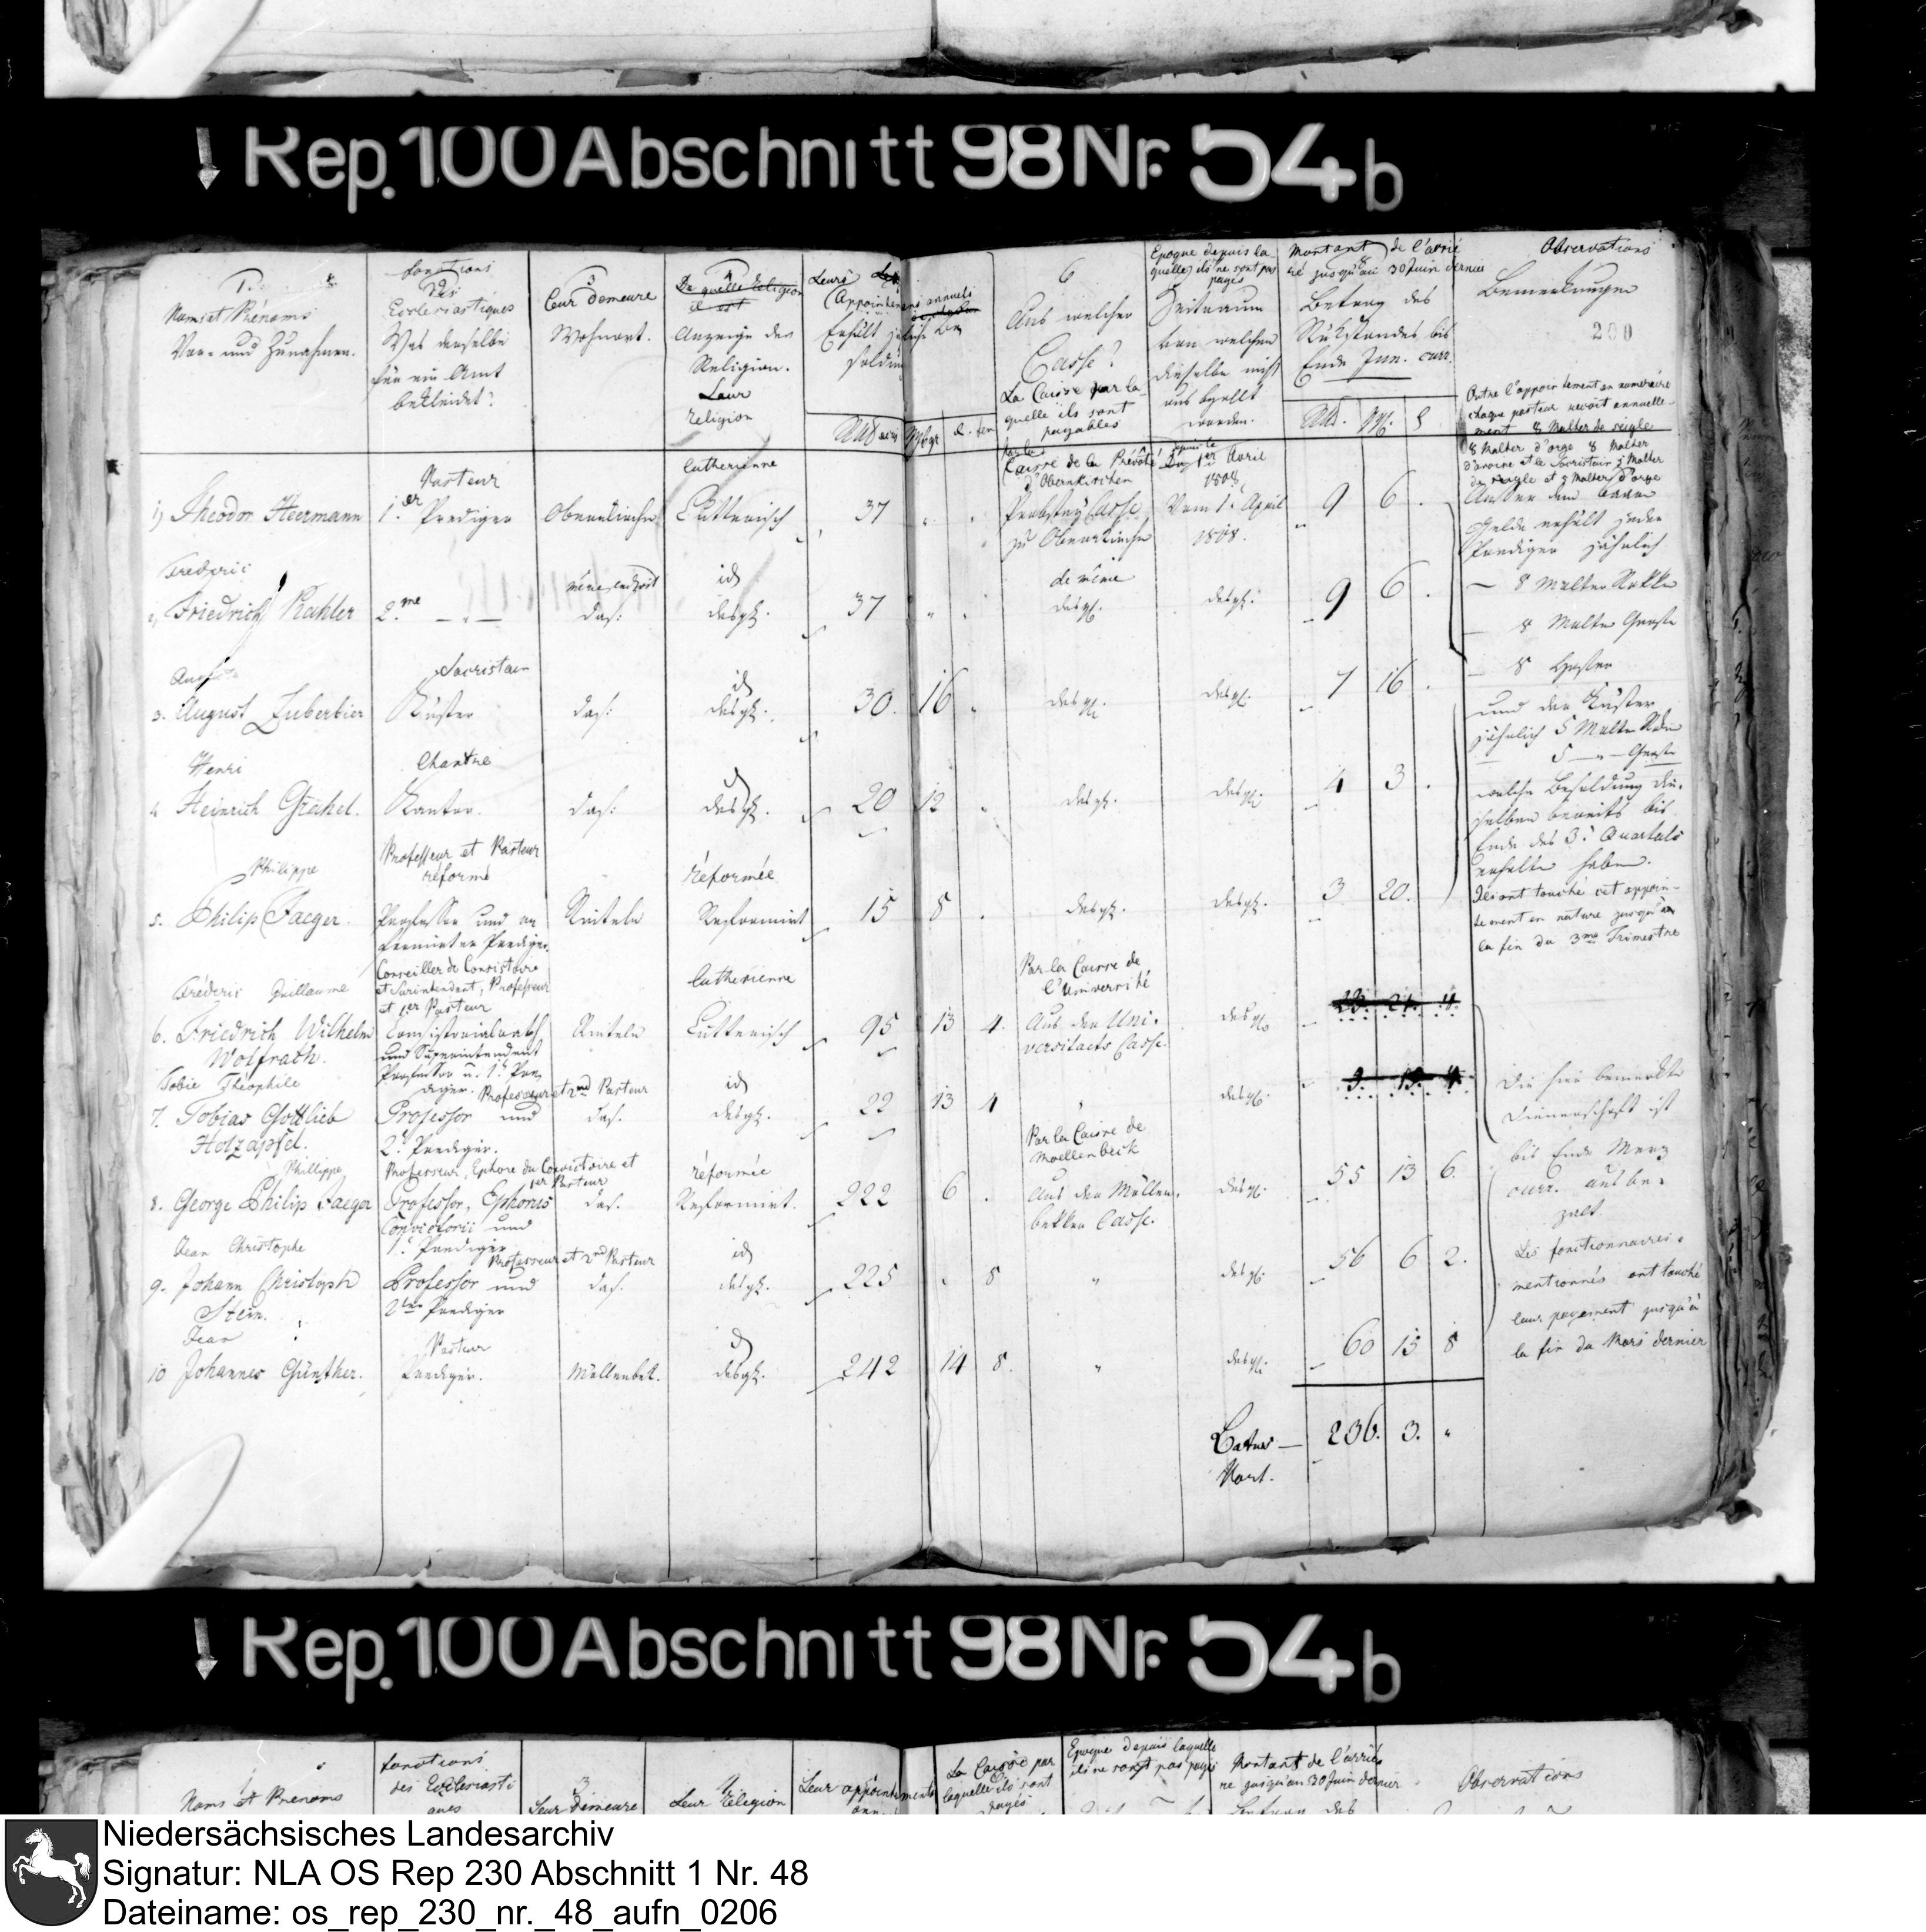 Rep. 100 Abschnitt 98 Nr. 54 b
Noms et Prénoms
Vor- und Zunahmen.
fonctions
des
Ecclesiastiques
Was derselbe
für ein Amt
bekleidet?
3
Leur demeure
Wohnort.
4
De quelle Religion
il est
Anzeige der
Religion.
Leur
religion
Leurs
Appointemens annuels
Erhält jährlich Be
soldung
6
Aus welcher
Casse?
La Caisse par la
quelle ils sont
payables
Epoque depuis la
quelle ils ne sont pas
payés
Zeitraum
von welchem
dieselbe nicht
ausbezahlt
worden.
Montant de l'arrié
ré jusqu'au 30 Juin dernier
8
Betrag des
Rückstandes bis
Ende Jun. curr.
Observations
Bemerkungen
200
Outre l'appointement en numéraire
chaque pasteur reçoit annuelle-
ment 8 Malter de seigle
8 Malter d'orge 8 Malter
d'avoine et le Sacristain 5 Malter
de seigle et 5 Malter d'orge
Pasteur
lutherienne
par la
Caisse de la Prévôté
d'Obernkirchen
depuis le
1er Avril
1808
1) Theodor Heermann 1.er Prediger Obernkirchen Lutterisch 37 Probstey Casse Vom 1. April 9 6
zu Obernkirchen 1808.
Außer dem baaren
Gelde erhält jeder
Prediger jährlich
Frederic
même endroit id de même
2, Friedrich Kahler 2.me das: desgl. 37 desgl. desgl. 9 6
— 8 Malter Rokken
— 8 Malter Gerste
— 8 Hafer
Sacristain
id
3. August Zuberbier Küster das: desgl. 30. 16 desgl. desgl. 7 16
und der Küster
jährlich 5 Malter Rokken
5 — Gerste
Henri
Chantre
id
4 Heinrich Grahel. Kantor. das: desgl. 20 12 desgl. desgl. 4 3
welche Besoldung die-
selben bereits bis
Ende des 3. Quartals
erhalten haben.
Philippe
Professeur et Pasteur
réformé
réformée
5. Philip Jaeger. Professor und re Rinteln Reformirt 15 8 desgl. desgl. 3 20.
formirter Prediger.
Ils ont touché cet appoin-
tement en nature jusqu'à
la fin du 3me Trimestre
Fréderic Guillaume
Conseiller de Consistoire
et Surintendent, Professeur
et 1er Pasteur
lutherienne
Par la Caisse de
l'Université
6. Friedrich Wilhelm Consistorialrath Rinteln Lutterisch 95 13 4. Aus der Uni- desgl. 23. 21. 4
Wolfrath. und Superintendent versitaets Casse.
Professor u. 1r Pre
diger.
Tobie Théophile
Professeur et 2nd Pasteur
id
7. Tobias Gottlieb Professor und das. desgl. 22 13 4 desgl.
Holzapfel. 2. Prediger.
Die hier bemerkte
Dienerschaft ist
bis Ende Merz
curr. ausbe-
zalt.
Phillippe
Professeur, Ephore du Convictoire et
1er Pasteur
réformée
Par la Caisse de
Moellenbeck
8. George Philip Jaeger Professor, Ephorus das. Reformirt. 222 6 Aus der Möllen- desgl. 55 13 6.
Convictorii und bekker Casse.
1r Prediger
Jean Christophe
Professeur et 2nd Pasteur
id
9. Johann Christoph Professor und das. desgl. 225 8 " desgl. 56 6 2.
Stein. 2ter Prediger
Les fonctionnaires
mentionnés ont touché
leur payement jusqu'à
la fin du Mars dernier
Jean
Pasteur
id
10 Johannes Günther. Prediger. Möllenbek. desgl. 242 14 8. " desgl. 60 15 8
Latus — 236. 3. "
Rep. 100 Abschnitt 98 Nr. 54 b
Noms et Prenoms
fonctions
des Ecclesiasti
ques
3
Leur demeure
Leur Réligion
Leur appointements
La Caisse par
laquelle ils sont
payés
Epoque depuis laquelle
ils ne sont pas payés
Montant de l'arrié
ré jusqu'au 30 Juin dernier
Observations
Niedersächsisches Landesarchiv
Signatur: NLA OS Rep 230 Abschnitt 1 Nr. 48
Dateiname: os_rep_230_nr._48_aufn_0206